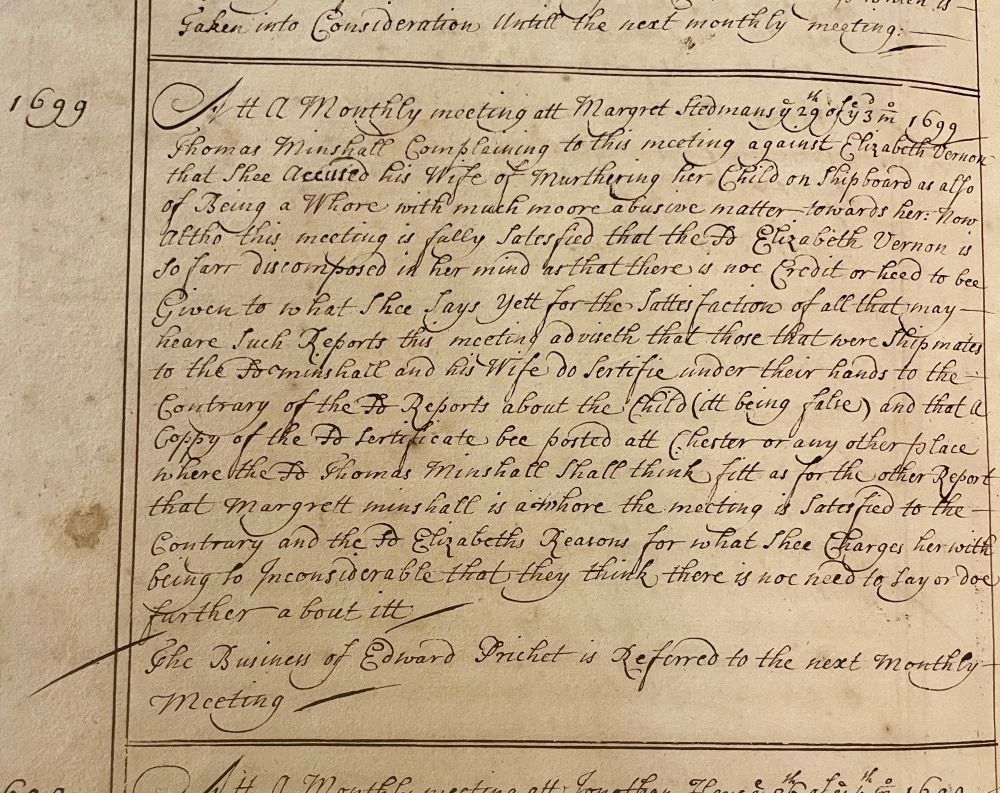 Taken into Consideration Untill the next monthly meeting.
1699
Att A Monthly meeting att Margret Stedmans yͤ 29th of yͤ 3d mo 1699
Thomas Minshall Complaining to this meeting against Elizabeth Vernon
that Shee Accused his Wife of Murthering her Child on Shipboard as also
of Being a Whore with much moore abusive matter towards her: Now
Altho this meeting is fully Satesfied that the Sd Elizabeth Vernon is
So farr discomposed in her mind as that there is noe Credit or heed to bee
Given to what Shee Says Yett for the Sattisfaction of all that may
heare Such Reports this meeting adviseth that those that were Ship mates
to the Sd minshall and his Wife do Sertifie under their hands to the
Contrary of the Sd Reports about the Child (itt being false) and that A
Coppy of the Sd Sertificate bee posted att Chester or any other place
where the Sd Thomas Minshall Shall think fitt as for the other Report
that Margrett minshall is a whore the meeting is Satesfied to the
Contrary and the Sd Elizabeths Reasons for what Shee Charges her with
being So Inconsiderable that they think there is noe need to Say or doe
further about itt
The Business of Edward Prichet is Referred to the next Monthly
Meeting
Att A Monthly meeting att Jonathan